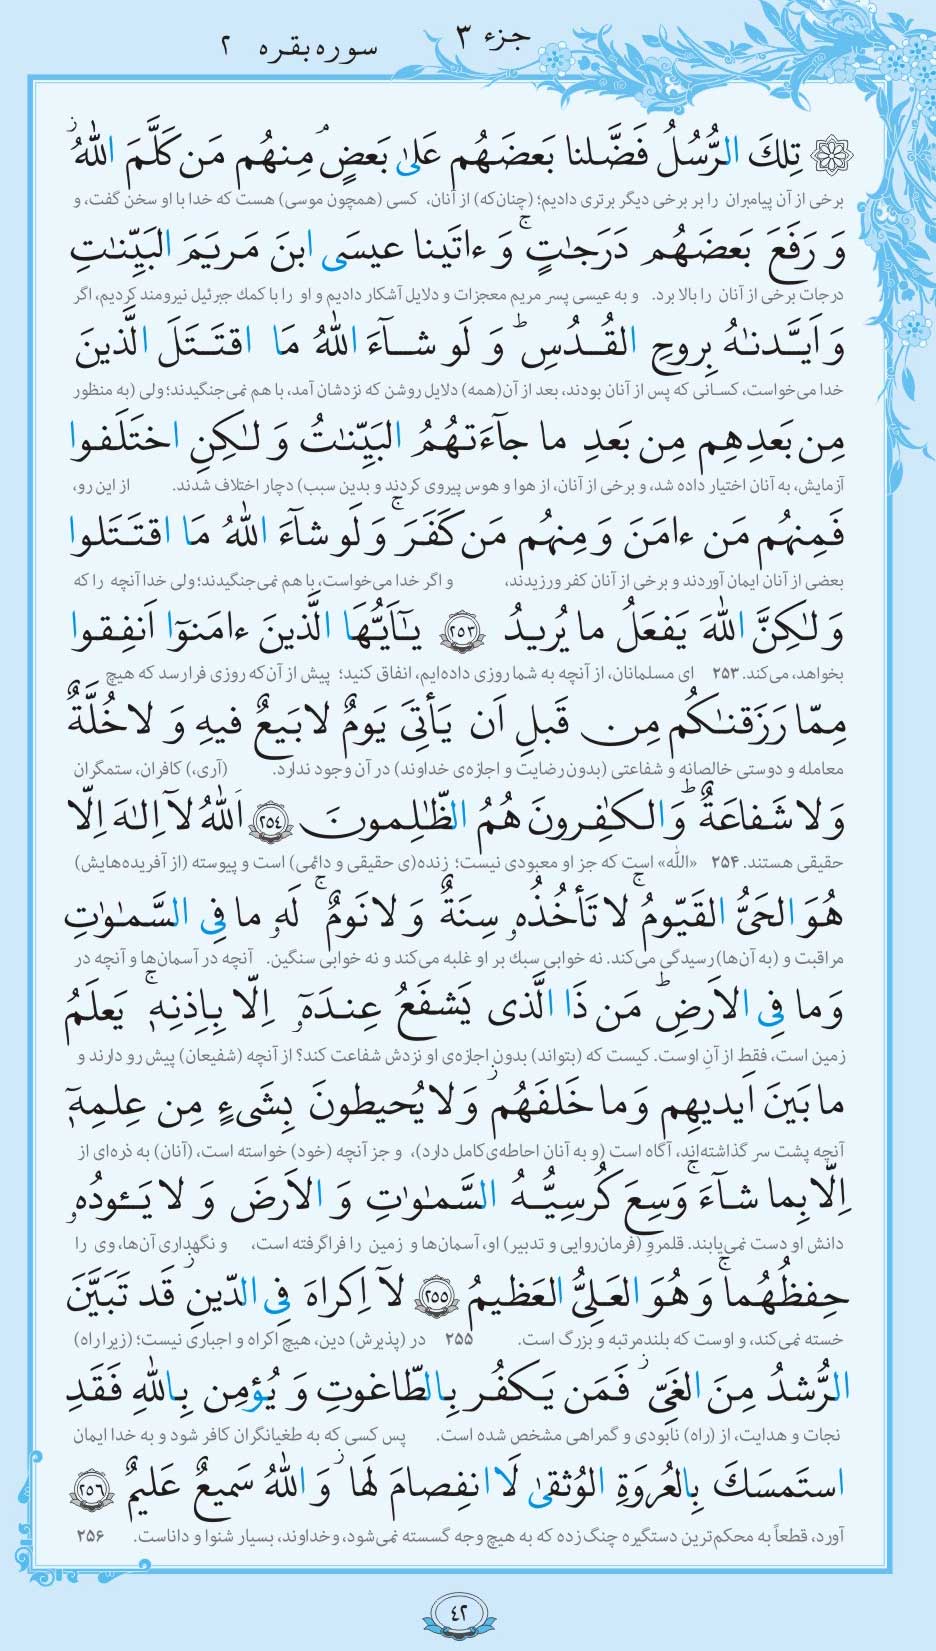 جزء ۳
سوره بقره ۲
تِلكَ الرُّسُلُ فَضَّلنا بَعضَهُم عَلىٰ بَعضٍ ۘ مِنهُم مَن كَلَّمَ اللّٰهُ ۖ
برخی از آن پیامبران را بر برخی دیگر برتری دادیم؛ (چنان‌که) از آنان، کسی (همچون موسی) هست که خدا با او سخن گفت، و
وَ رَفَعَ بَعضَهُم دَرَجٰتٍ ۚ وَ ءاتَينا عيسَى ابنَ مَريَمَ البَيِّنٰتِ
درجات برخی از آنان را بالا برد. و به عیسی پسر مریم معجزات و دلایل آشکار دادیم و او را با کمك جبرئیل نیرومند کردیم، اگر
وَ اَيَّدنٰهُ بِروحِ القُدُسِ ؕ وَ لَو شآءَ اللّٰهُ مَا اقتَتَلَ الَّذينَ
خدا می‌خواست، کسانی که پس از آنان بودند، بعد از آن(همه) دلایل روشن که نزدشان آمد، با هم نمی‌جنگیدند؛ ولی (به منظور
مِن بَعدِهِم مِن بَعدِ ما جآءَتهُمُ البَيِّنٰتُ وَ لٰكِنِ اختَلَفوا
آزمایش، به آنان اختیار داده شد، و برخی از آنان، از هوا و هوس پیروی کردند و بدین سبب) دچار اختلاف شدند. از این رو،
فَمِنهُم مَن ءامَنَ وَ مِنهُم مَن كَفَرَ ۚ وَ لَو شآءَ اللّٰهُ مَا اقتَتَلوا
بعضی از آنان ایمان آوردند و برخی از آنان کفر ورزیدند، و اگر خدا می‌خواست، با هم نمی‌جنگیدند؛ ولی خدا آنچه را که
وَ لٰكِنَّ اللّٰهَ يَفعَلُ ما يُريدُ ﴿٢٥٣﴾ يٰٓاَيُّهَا الَّذينَ ءامَنوٓا اَنفِقوا
بخواهد، می‌کند. ۲۵۳ ای مسلمانان، از آنچه به شما روزی داده‌ایم، انفاق کنید؛ پیش از آن‌که روزی فرارسد که هیچ
مِمّا رَزَقنٰكُم مِن قَبلِ اَن يَأتِيَ يَومٌ لا بَيعٌ فيهِ وَ لا خُلَّةٌ
معامله و دوستی خالصانه و شفاعتی (بدون رضایت و اجازه‌ی خداوند) در آن وجود ندارد. (آری،) کافران، ستمگران
وَ لا شَفاعَةٌ ؕ وَ الكٰفِرونَ هُمُ الظّٰلِمونَ ﴿٢٥٤﴾ اَللّٰهُ لآ اِلٰهَ اِلّا
حقیقی هستند. ۲۵۴ «اللّٰه» است که جز او معبودی نیست؛ زنده(ی حقیقی و دائمی) است و پیوسته (از آفریده‌هایش)
هُوَ الحَيُّ القَيّومُ ۚ لا تَأخُذُهٗ سِنَةٌ وَ لا نَومٌ ۚ لَهٗ ما فِي السَّمٰوٰتِ
مراقبت و (به آن‌ها) رسیدگی می‌کند. نه خوابی سبك بر او غلبه می‌کند و نه خوابی سنگین. آنچه در آسمان‌ها و آنچه در
وَ ما فِي الاَرضِ ؕ مَن ذَا الَّذى يَشفَعُ عِندَهٗٓ اِلّا بِاِذنِهٖ ۚ يَعلَمُ
زمین است، فقط از آنِ اوست. کیست که (بتواند) بدون اجازه‌ی او نزدش شفاعت کند؟ از آنچه (شفیعان) پیش رو دارند و
ما بَينَ اَيديهِم وَ ما خَلفَهُم ۖ وَ لا يُحيطونَ بِشَىءٍ مِن عِلمِهٖٓ
آنچه پشت سر گذاشته‌اند، آگاه است (و به آنان احاطه‌ی کامل دارد)، و جز آنچه (خود) خواسته است، (آنان) به ذره‌ای از
اِلّا بِما شآءَ ۚ وَسِعَ كُرسِيُّهُ السَّمٰوٰتِ وَ الاَرضَ وَ لا يَـٔودُهٗ
دانش او دست نمی‌یابند. قلمروِ (فرمان‌روایی و تدبیر) او، آسمان‌ها و زمین را فراگرفته است، و نگهداری آن‌ها، وی را
حِفظُهُما ۚ وَ هُوَ العَلِيُّ العَظيمُ ﴿٢٥٥﴾ لآ اِكراهَ فِي الدّينِ ۖ قَد تَبَيَّنَ
خسته نمی‌کند، و اوست که بلندمرتبه و بزرگ است. ۲۵۵ در (پذیرش) دین، هیچ اکراه و اجباری نیست؛ (زیرا راه)
الرُّشدُ مِنَ الغَيِّ ۚ فَمَن يَكفُر بِالطّاغوتِ وَ يُؤمِن بِاللّٰهِ فَقَدِ
نجات و هدایت، از (راه) نابودی و گمراهی مشخص شده است. پس کسی که به طغیانگران کافر شود و به خدا ایمان
استَمسَكَ بِالعُروَةِ الوُثقىٰ لَا انفِصامَ لَها ۗ وَ اللّٰهُ سَميعٌ عَليمٌ ﴿٢٥٦﴾
آورد، قطعاً به محکم‌ترین دستگیره چنگ زده که به هیچ وجه گسسته نمی‌شود، و خداوند، بسیار شنوا و داناست. ۲۵۶
٤٢